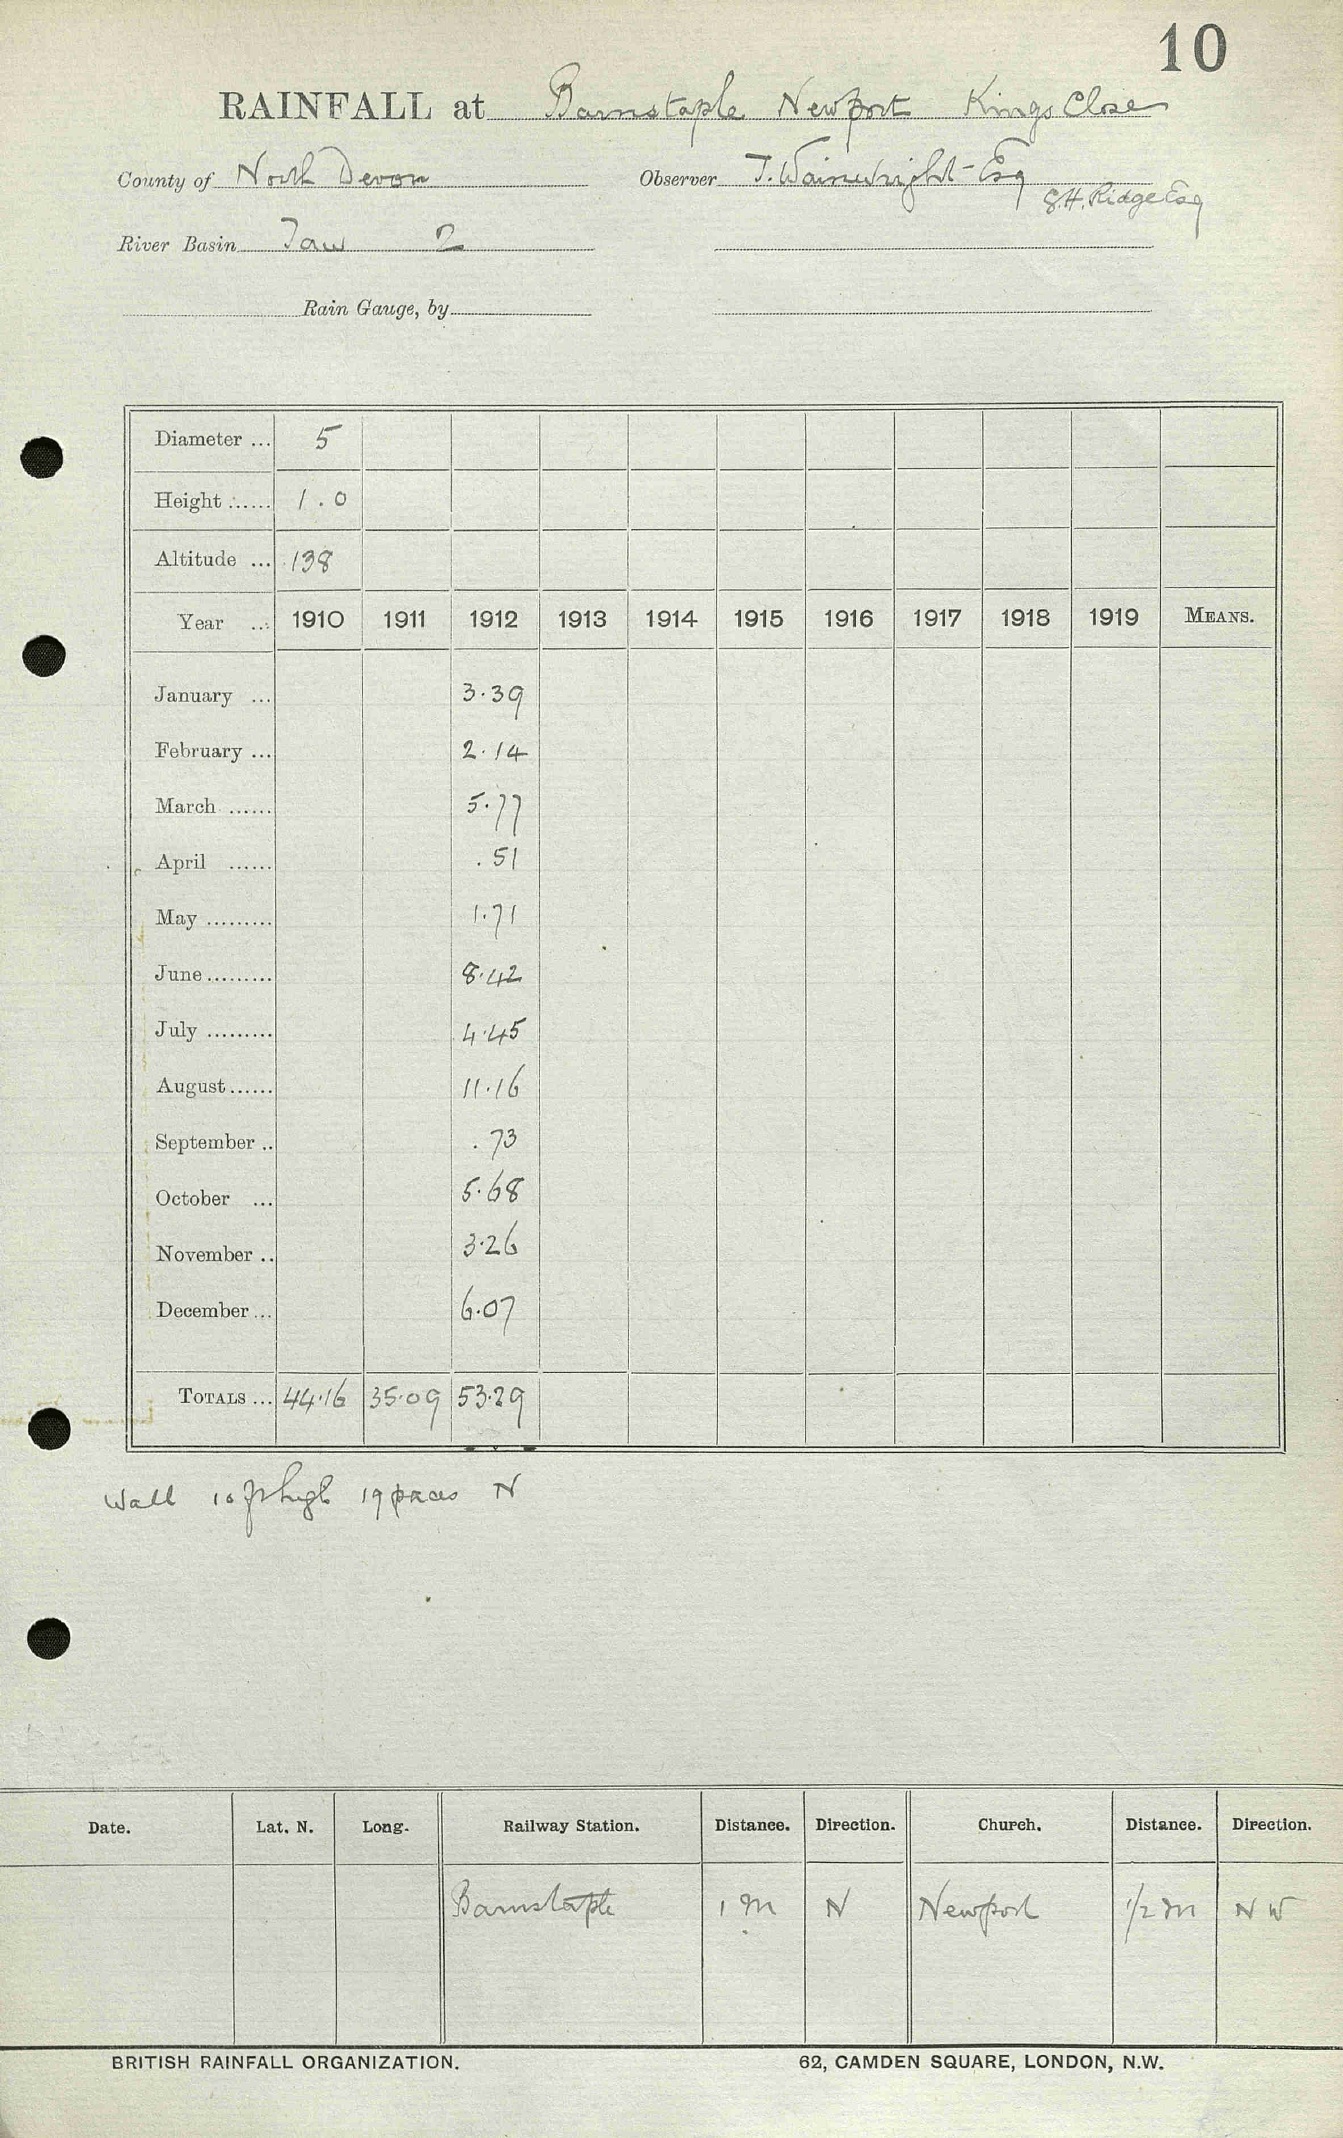 10
RAINFALL at Barnstaple Newport Kings Close
County of North Devon Observer T. Wainwright Esq
S.H. Ridge Esq
River Basin Taw 2
Rain Gauge, by
Diameter ... 5
Height ...... 1.0
Altitude ... 138
Year ... 1910 1911 1912 1913 1914 1915 1916 1917 1918 1919 MEANS.
January ... 3.39
February ... 2.14
March ...... 5.77
April ...... .51
May ......... 1.71
June ......... 8.42
July ......... 4.45
August ...... 11.16
September .. .73
October ... 5.68
November .. 3.26
December ... 6.07
TOTALS ... 44.16 35.09 53.29
Wall 10 ft high 19 paces N
Date. Lat. N. Long. Railway Station. Distance. Direction. Church. Distance. Direction.
Barnstaple 1 m N Newport 1/2 m N W
BRITISH RAINFALL ORGANIZATION. 62, CAMDEN SQUARE, LONDON, N.W.